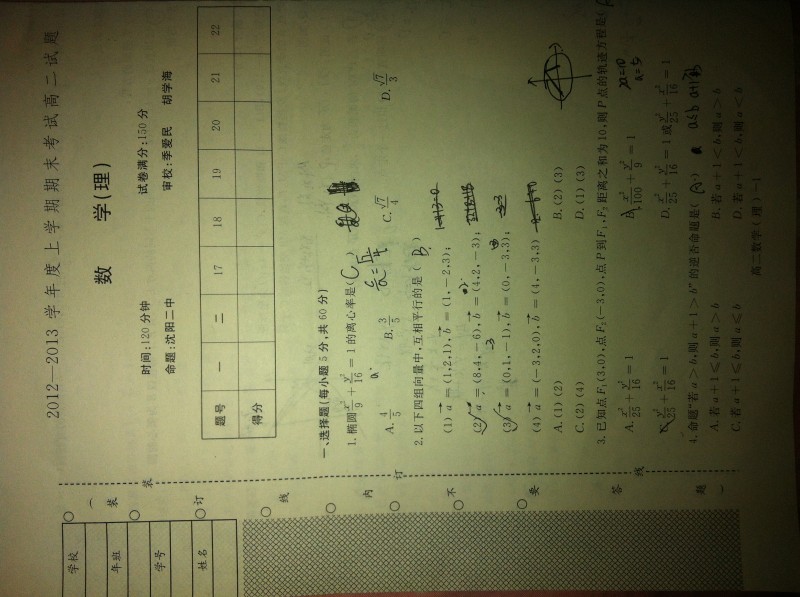 2012—2013学年度上学期期末考试高二试题
数 学(理)
时间:120分钟 试卷满分:150分
命题:沈阳二中 审校:李爱民 胡学海
题号 一 二 17 18 19 20 21 22
得分
一、选择题(每小题5分,共60分)
1.椭圆x²/9+y²/16=1的离心率是( C )
A.4/5 B.3/5 C.√7/4 D.√7/3
2.以下四组向量中,互相平行的是( B )
(1) a=(1,2,1),b=(1,-2,3);
(2) a=(8,4,-6),b=(4,2,-3);
(3) a=(0,1,-1),b=(0,-3,3);
(4) a=(-3,2,0),b=(4,-3,3)
A.(1)(2) B.(2)(3)
C.(2)(4) D.(1)(3)
3.已知点F₁(3,0),点F₂(-3,0),点P到F₁,F₂距离之和为10,则P点的轨迹方程是(
2a=10
a=5
A.x²/25+y²/16=1 B.x²/100+y²/9=1
C.y²/25+x²/16=1 D.x²/25+y²/16=1或y²/25+x²/16=1
4.命题“若a>b,则a+1>b”的逆否命题是(
A.若a+1⩽b,则a>b B.若a+1<b,则a>b
C.若a+1⩽b,则a⩽b D.若a+1<b,则a<b
高二数学(理)-1
学校
年班
学号
姓名
(装 订 线 内 不 要 答 题)
装 订 线